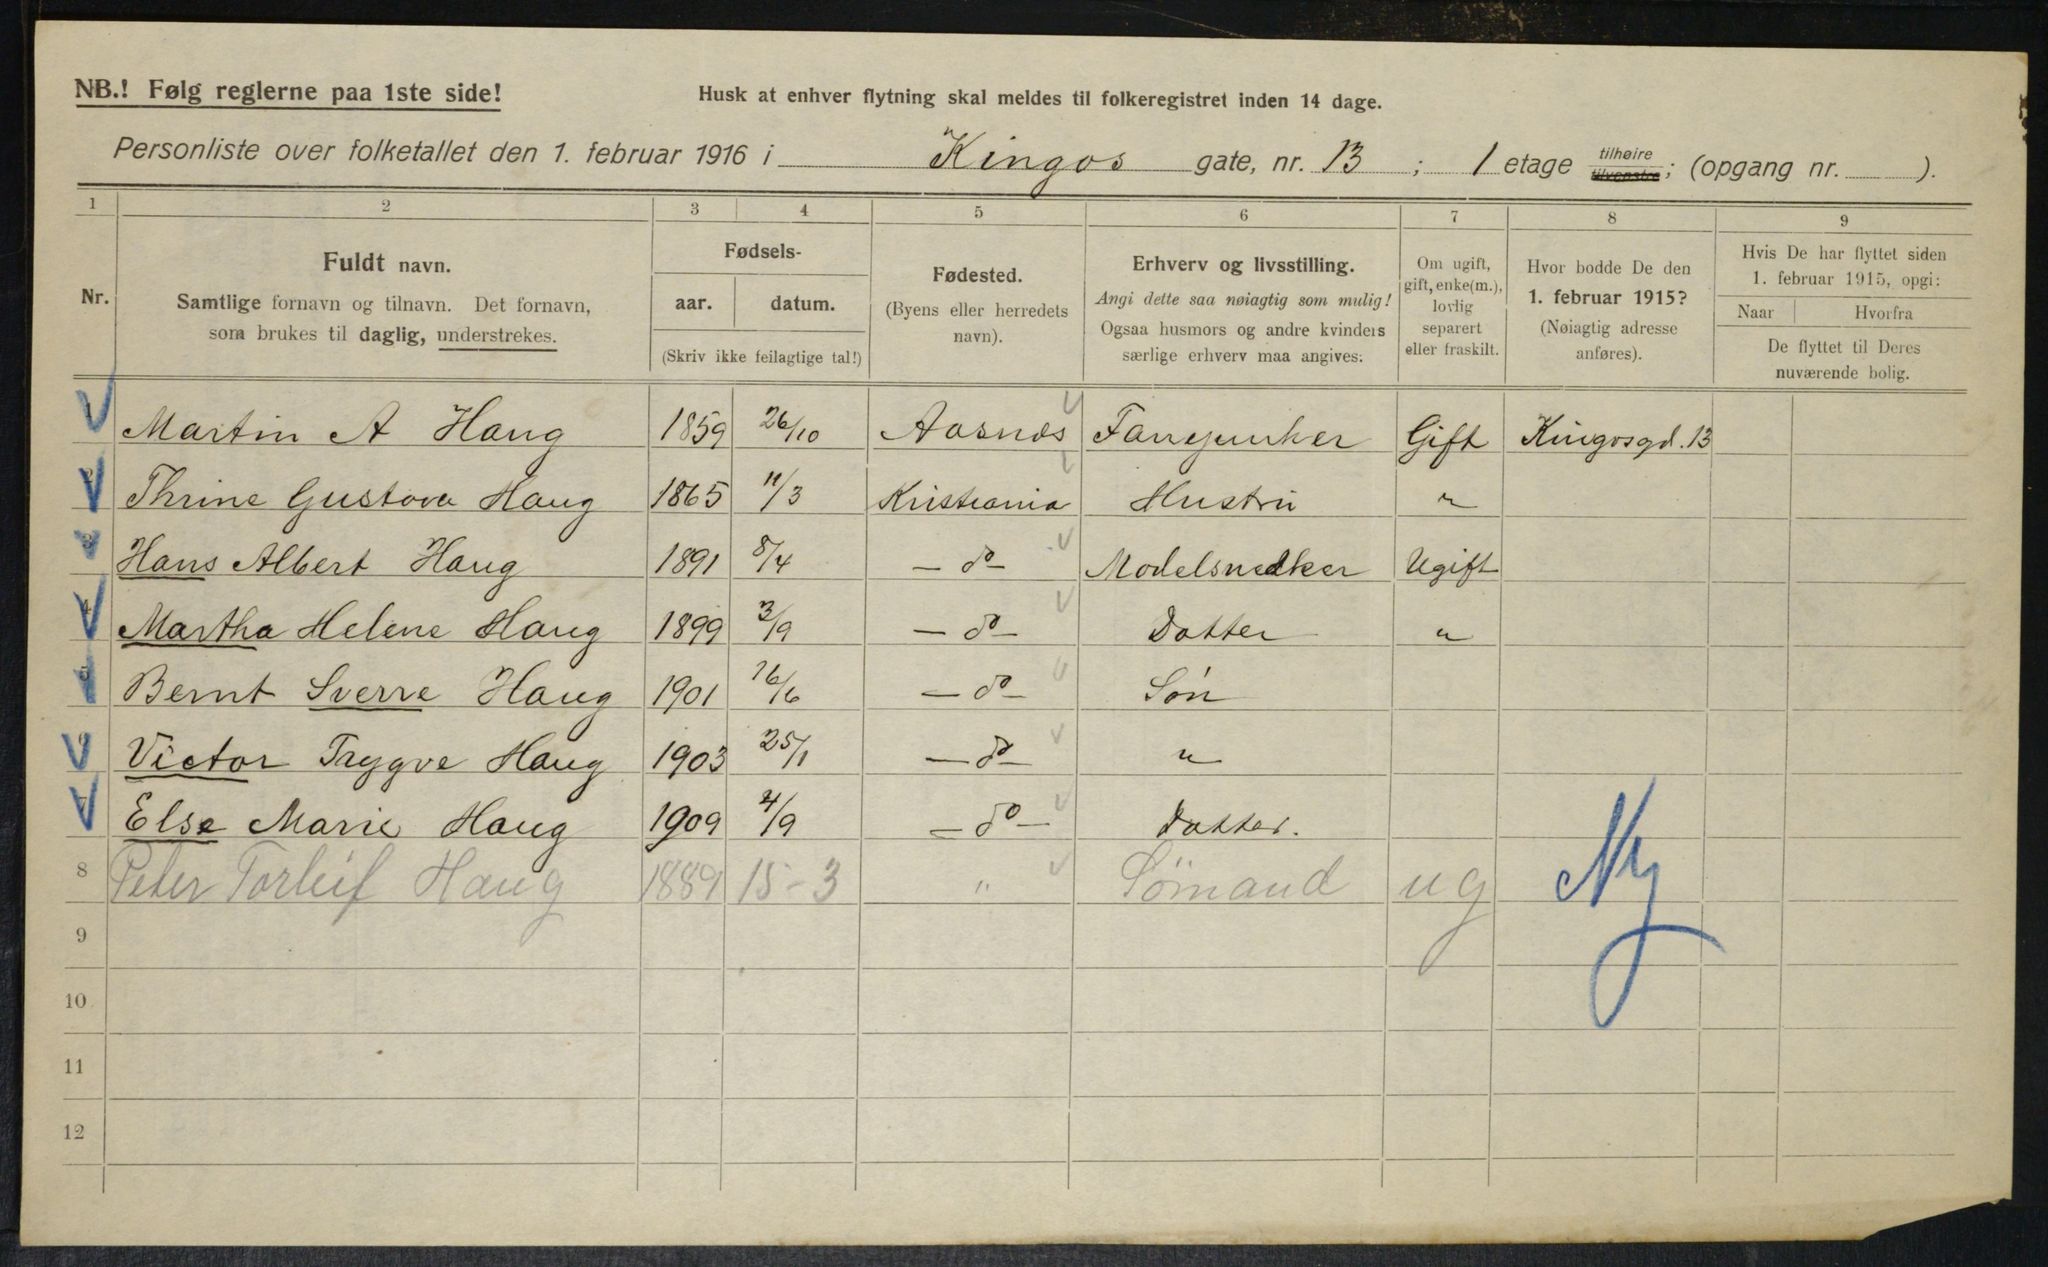 NB.! Følg reglerne paa 1ste side!
Husk at enhver flytning skal meldes til folkeregistret inden 14 dage.
Personliste over folketallet den 1. februar 1916 i Kingos gate, nr. 13 ; 1 etage tilhøire tilvenstre; (opgang nr. ).
1 2 3 4 5 6 7 8 9
Nr.
Fuldt navn.
Samtlige fornavn og tilnavn. Det fornavn,
som brukes til daglig, understrekes.
Fødsels-
aar. datum.
(Skriv ikke feilagtige tal!)
Fødested.
(Byens eller herredets
navn).
Erhverv og livsstilling.
Angi dette saa nøiagtig som mulig!
Ogsaa husmors og andre kvinders
særlige erhverv maa angives.
Om ugift,
gift, enke(m.),
lovlig
separert
eller fraskilt.
Hvor bodde De den
1. februar 1915?
(Nøiagtig adresse
anføres).
Hvis De har flyttet siden
1. februar 1915, opgi:
Naar Hvorfra
De flyttet til Deres
nuværende bolig.
1 Martin A Haug 1859 26/10 Aasnes Gift Kingosgd. 13
2 Thrine Gustava Haug 1865 11/3 Kristiania Hustru "
3 Hans Albert Haug 1891 8/4 — do — Modelsnedker Ugift
4 Martha Helene Haug 1899 3/9 — do — Datter "
5 Bernt Sverre Haug 1901 16/6 — do — Søn
6 Victor Trygve Haug 1903 25/1 — do — "
7 Else Marie Haug 1909 4/9 — do — Datter.
8 Peter Torleif Haug 1889 15-3 " Sømand ug
Ny
9
10
11
12